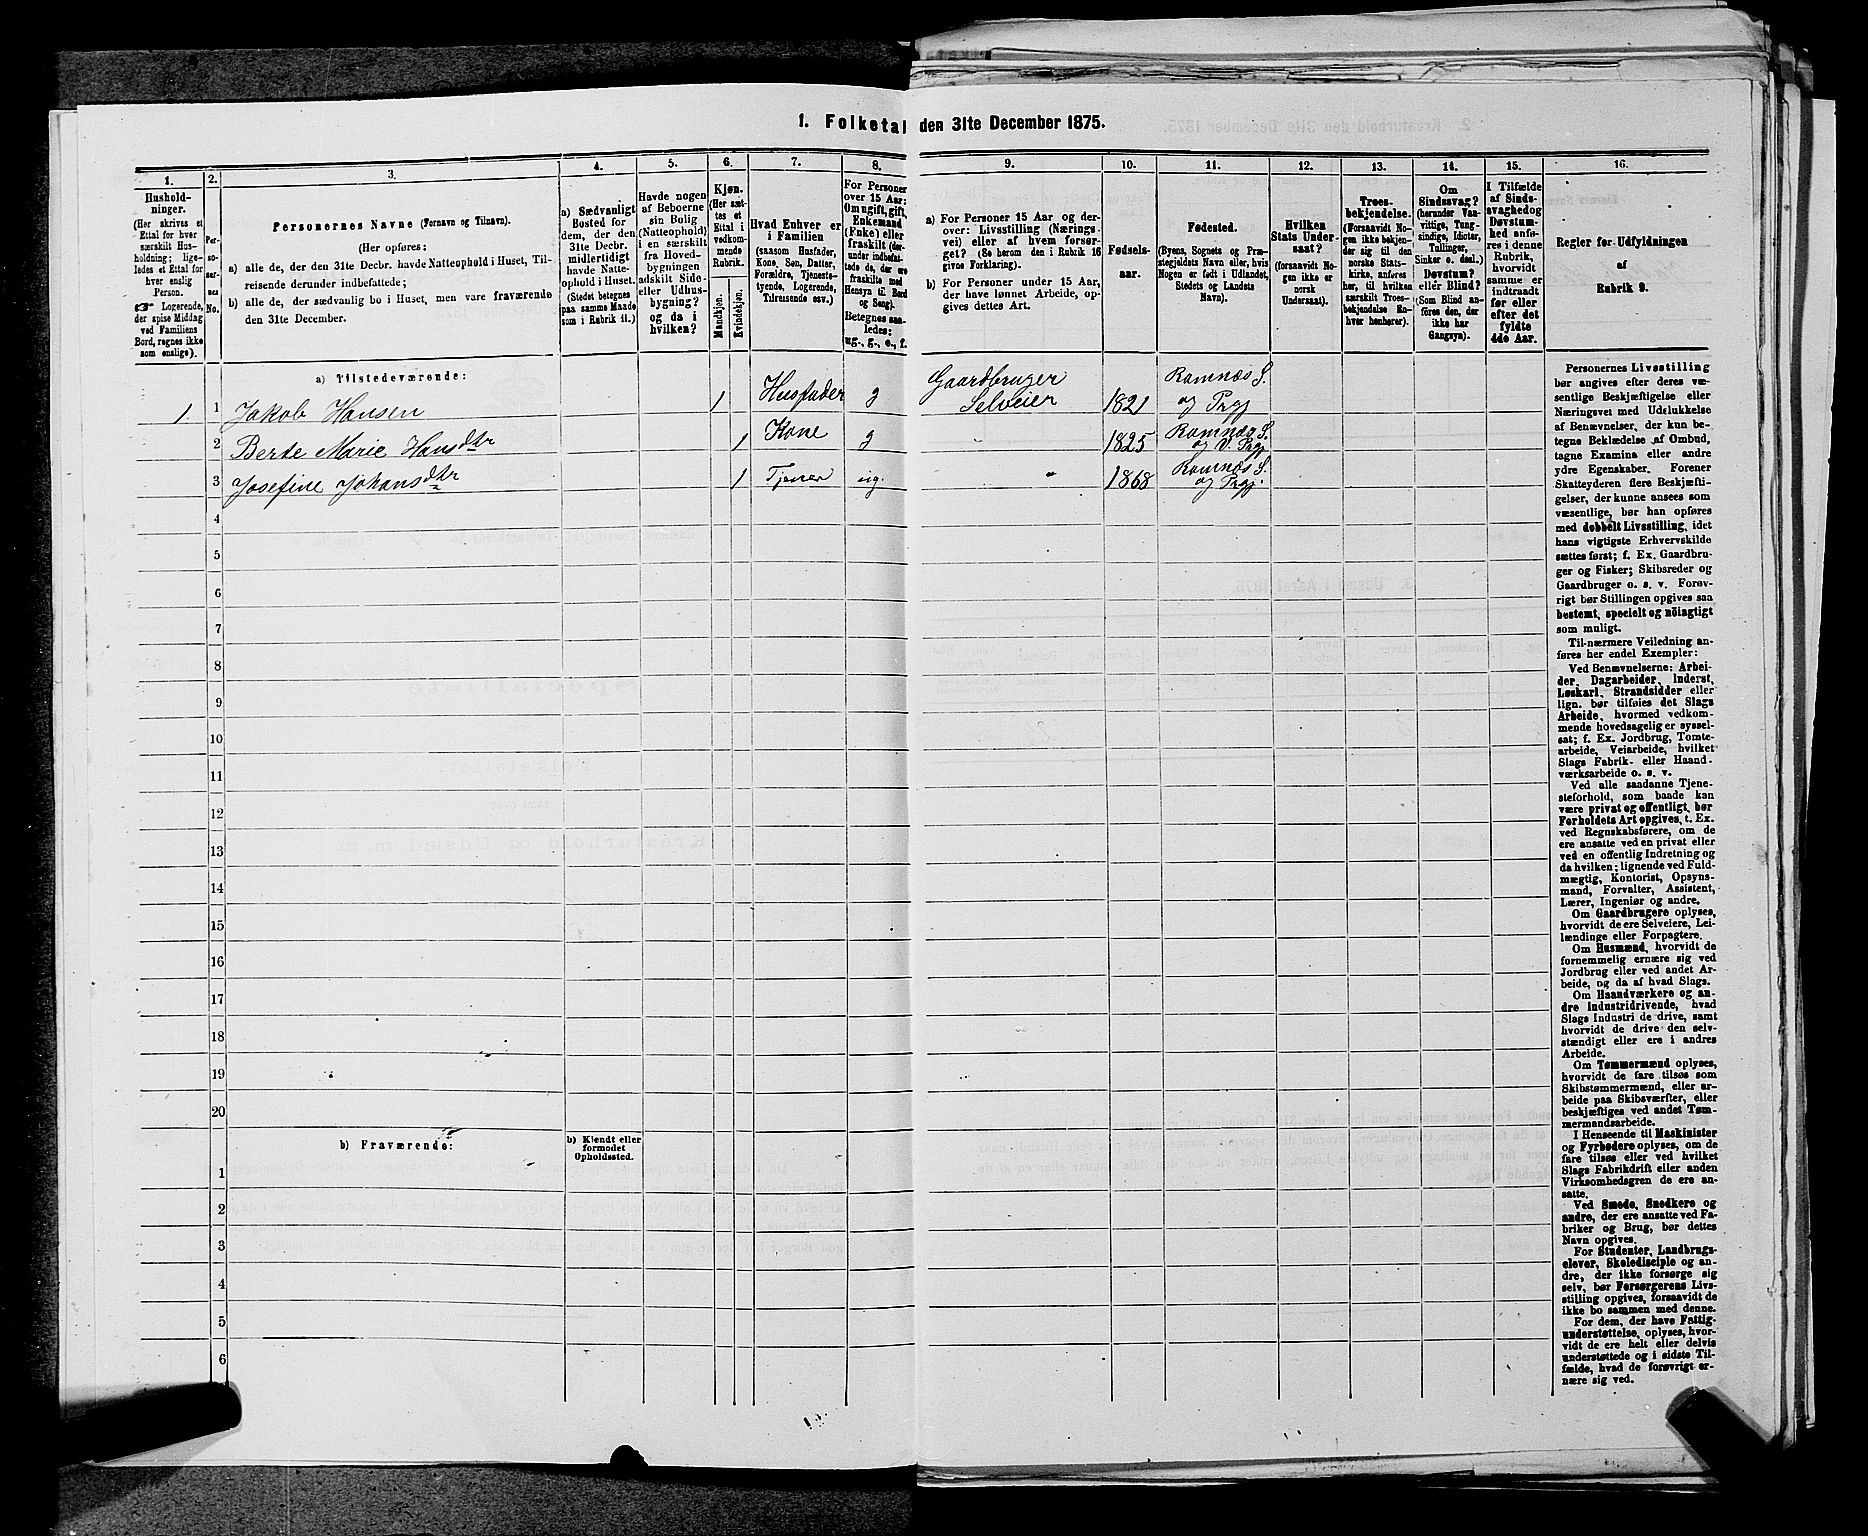 1. Folketal den 31te December 1875.
1.
Hushold-
ninger.
(Her skrives et
Ettal for hver
særskilt Hus-
holdning; lige-
ledes et Ettal for
hver enslig
Person.
Logerende,
der spise Middag
ved Familiens
Bord, regnes ikke
som enslige).
2.
Per-
soner-
nes
No.
3.
Personernes Navne (Fornavn og Tilnavn).
(Her opføres:
a) alle de, der den 31te Decbr. havde Natteophold i Huset, Til-
reisende derunder indbefattede;
b) alle de, der sædvanlig bo i Huset, men vare fraværende
den 31te December.
4.
a) Sædvanligt
Bosted for
dem, der den
31te Decbr.
midlertidigt
havde Natte-
ophold i Huset.
(Stedet betegnes
paa samme Maade
som i Rubrik 11.)
5.
Havde nogen
af Beboerne
sin Bolig
(Natteophold)
i en særskilt
fra Hoved-
bygningen
adskilt Side-
eller Udhus-
bygning?
og da i
hvilken?
6.
Kjøn.
(Her sæt-
tes et
Ettal i
vedkom-
mende
Rubrik.
Mandkjøn.
Kvindekjøn.
7.
Hvad Enhver er
i Familien
(saasom Husfader,
Kone, Søn, Datter,
Forældre, Tjeneste-
tyende, Logerende,
Tilreisende osv.)
8.
For Personer
over 15 Aar:
Om ugift, gift,
Enkemand
(Enke) eller
fraskilt (der-
under indbefat-
tede de, der ere
fraskilte med
Hensyn til Bord
og Seng).
Betegnes saa-
ledes:
ug., g., e., f.
9.
a) For Personer 15 Aar og der-
over: Livsstilling (Nærings-
vei) eller af hvem forsør-
get? (Se herom den i Rubrik 16
givne Forklaring).
b) For Personer under 15 Aar,
der have lønnet Arbeide, op-
gives dettes Art.
10.
Fødsels-
aar.
11.
Fødested.
(Byens, Sognets og Præ-
stegjeldets Navn eller, hvis
Nogen er født i Udlandet,
Stedets og Landets
Navn).
12.
Hvilken
Stats Under-
saat?
(forsaavidt No-
gen ikke er
norsk
Undersaat).
13.
Troes-
bekjendelse.
(Forsaavidt No-
gen ikke bekjen-
der sig til den
norske Stats-
kirke, anføres
her, til hvilken
særskilt Troes-
bekjendelse En-
hver henhører).
14.
Om
Sindssvag?
(herunder Van-
vittige, Tung-
sindige, Idioter,
Tullinger,
Sinker o. desl.)
Døvstum?
eller Blind?
(Som Blind an-
føres den, der
ikke har
Gangsyn).
15.
I Tilfælde
af Sinds-
svaghed og
Døvstum-
hed anfø-
res i denne
Rubrik,
hvorvidt
samme er
indtraadt
før eller
efter det
fyldte
4de Aar.
16.
Regler for Udfyldningen
af
Rubrik 9.
a) Tilstedeværende:
1 1 Jakob Hansen 1 Husfader g Gaardbruger Selveier 1821 Ramnæs S. og Prgj
2 Berte Marie Hansdtr 1 Kone g " 1825 Ramnæs S. og V. Prgj
3 Josefine Johansdtr 1 Tjener ug. " 1868 Ramnæs S. og Prgj.
4
5
6
7
8
9
10
11
12
13
14
15
16
17
18
19
20
b) Fraværende:
b) Kjendt eller
formodet
Opholdssted.
1
2
3
4
5
6
Personernes Livsstilling
bør angives efter deres væ-
sentlige Beskjæftigelse eller
Næringsvei med Udelukkelse
af Benævnelser, der kun be-
tegne Beklædelse af Ombud,
tagne Examina eller andre
ydre Egenskaber. Forener
Skatteyderen flere Beskjæfti-
gelser, der kunne ansees som
væsentlige, bør han opføres
med dobbelt Livsstilling, idet
hans vigtigste Erhvervskilde
sættes først; f. Ex. Gaardbru-
ger og Fisker; Skibsreder og
Gaardbruger o. s. v. Forøv-
rigt bør Stillingen opgives saa
bestemt, specielt og nöiagtigt
som muligt.
Til nærmere Veiledning an-
føres her endel Exempler:
Ved Benævnelserne: Arbei-
der, Dagarbeider, Inderst,
Løskarl, Strandsidder eller
lign. bør tilføies det Slags
Arbeide, hvormed vedkom-
mende hovedsagelig er syssel-
sat; f. Ex. Jordbrug, Tomte-
arbeide, Veiarbeide, hvilket
Slags Fabrik- eller Haand-
værksarbeide o. s. v.
Ved alle saadanne Tjene-
steforhold, som baade kan
være privat og offentligt, bør
Forholdets Art opgives, t. Ex.
ved Regnskabsførere, om de
ere ansatte ved en privat eller
ved en offentlig Indretning og
da hvilken; lignende ved Fuld-
mægtig, Kontorist, Opsyns-
mand, Forvalter, Assistent,
Lærer, Ingeniør og andre.
Om Gaardbrugere oplyses,
hvorvidt de ere Selveiere, Lei-
lændinge eller Forpagtere.
Om Husmænd, hvorvidt de
fornemmelig ernære sig ved
Jordbrug eller ved andet Ar-
beide, og da af hvad Slags.
Om Haandværkere og an-
dre industridrivende, hvad
Slags Industri de drive, samt
hvorvidt de drive den selv-
stændigt eller ere i andres
Arbeide.
Om Tømmermænd oplyses,
hvorvidt de fare tilsøs som
Skibstømmermænd, eller ar-
beide paa Skibsværfter, eller
beskjæftiges ved andet Tøm-
mermandsarbeide.
I Henseende til Maskinister
og Fyrbødere oplyses, om de
fare tilsøs eller ved hvilket
Slags Fabrikdrift eller anden
Virksomhedsgren de ere an-
satte.
Ved Smede, Snedkere og
andre, der ere ansatte ved Fa-
briker og Brug, bør dettes
Navn opgives.
For Studenter, Landbrugs-
elever, Skoledisciple og an-
dre, der ikke forsørge sig
selv, bør Forsørgerens Livs-
stilling opgives, forsaavidt de
ikke bo sammen med denne.
For dem, der have Fattig-
understøttelse, oplyses, hvor-
vidt de ere helt eller delvis
understøttede og i sidste Til-
fælde, hvad de forøvrigt er-
nære sig ved.